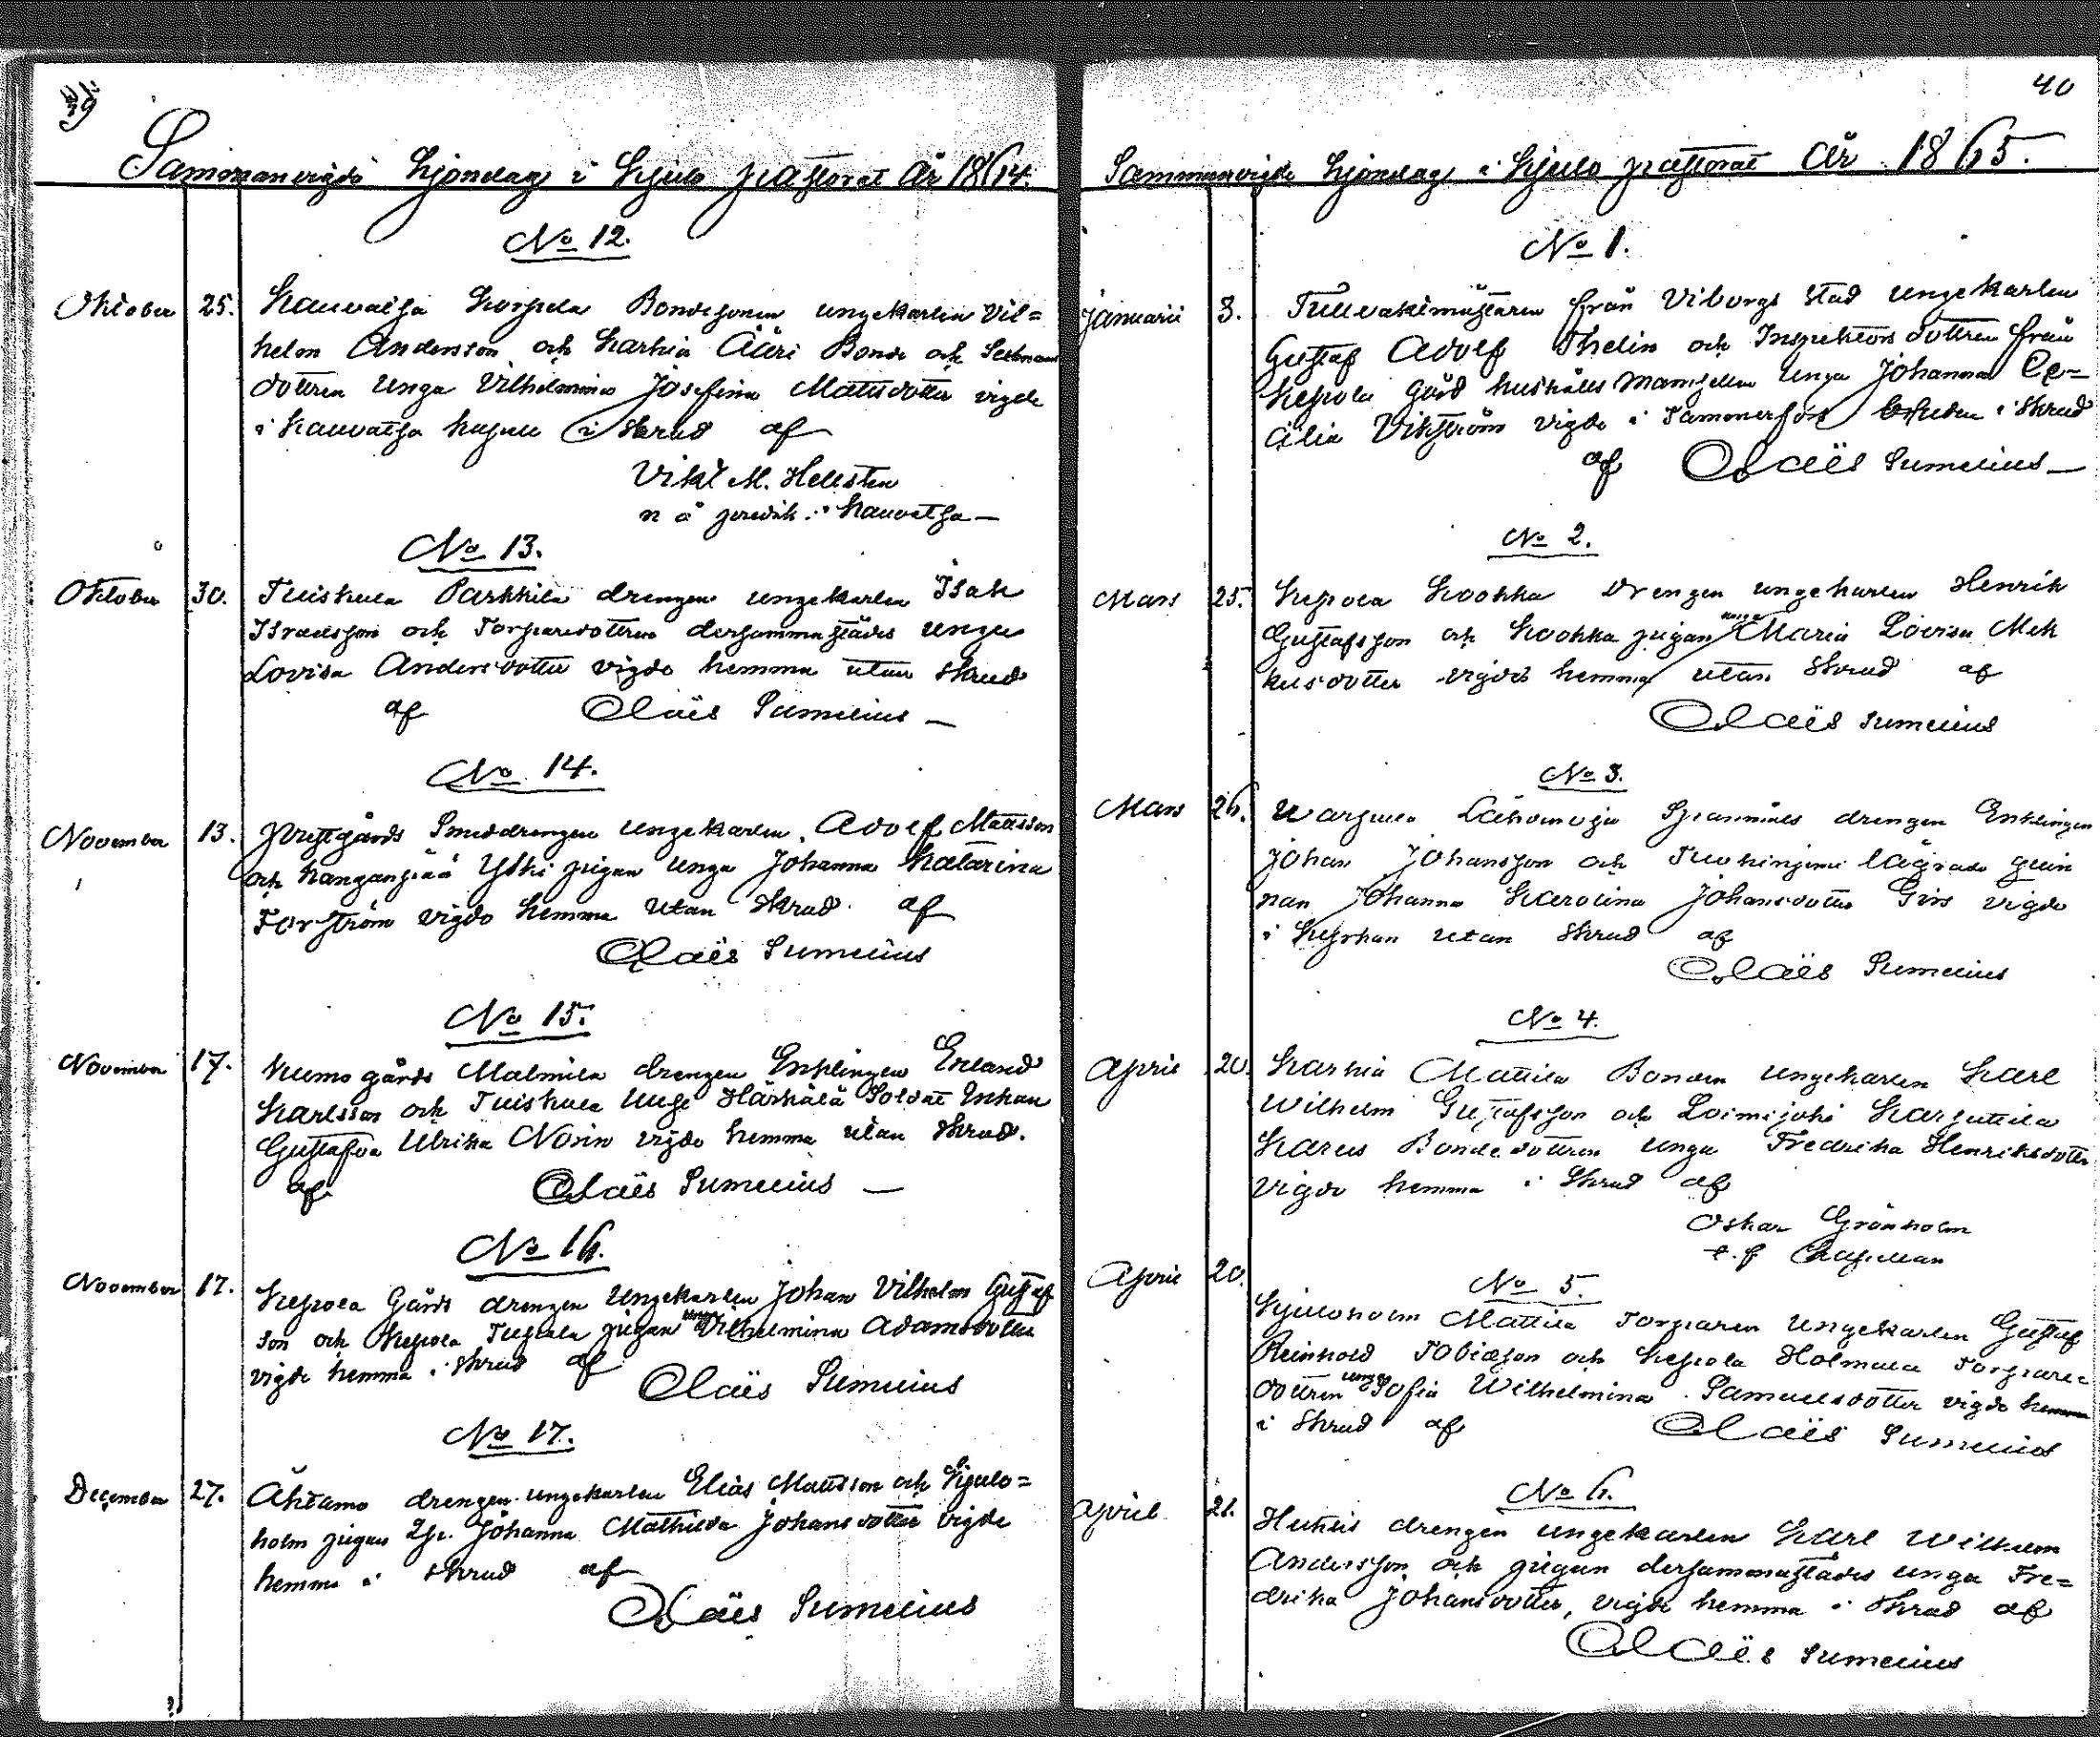 39
Sammanvigde Hjonelag i Kjulo pastorat År 1864.
No 12.
Oktober 25. Kauvatsa Korpela Bondesonen ungekarlen Vil=
helm Andersson och Karhia Ääri Bonde och
dottren Unga Vilhelmina Josefina Mattsdotter vigde
i Kauvatsa kapell i skrud af
Vikt M. Hellsten
n å predik. i Kauvatsa —
No 13.
Oktober 30. Tuiskula Parkkila drengen ungekarlen Isak
Israelsson och Torparedottren dersammastädes unga
Lovisa Andersdotter vigde hemma utan skrud
af Claës Sumelius —
No 14.
November 13. prestgårds Smeddrengen ungekarlen Adolf Mattsson
och Kanganpää Yski pigan unga Johanna Katarina
Forström vigde hemma utan skrud af
Claës Sumelius
No 15.
November 17. Kumo gårds Malmila drengen Enklingen Erland
Karlsson och Tuiskula Härkälä Soldat Enkan
Gustafva Ulrika Norin vigde hemma utan skrud.
af Claës Sumelius —
No 16.
November 17. Kepola Gårds drengen Ungekarlen Johan Vilhelm Gustaf
son och Kepola pigan unga Vilhelmina Adamsdotter
vigde hemma i skrud af
Claës Sumelius
No 17.
December 27. Ähtamo drengen ungekarlen Elias Mattsson och Kjulo=
holm pigan Johanna Mathilda Johansdotter vigde
hemma i skrud af
Claës Sumelius
40
Sammanvigde Hjonelag i Kjulo pastorat År 1865.
No 1.
Januarii 3. Tullvaktmästaren från Viborgs stad ungekarlen
Gustaf Adolf Thelin och Inspektors dottren från
Kepola gård hushålls Mamsellen Unga Johanna Ce=
cilia Vikström vigde i Tammerfors i skrud
af Claës Sumelius —
No 2.
Mars 25. Kepola Koohka Drengen ungekarlen Henrik
Gustafsson och Koohka pigan unga Maria Lovisa Mik
kelsdotter vigde hemma utan skrud af
Claës Sumelius
No 3.
Mars 26. drengen Enklingen
Johan Johansson och lägrade quin
nan Johanna Karolina Johansdotter Girs vigde
i Kyrkan utan skrud af
Claës Sumelius
No 4.
April 20. Karhia Mattila Bonden ungekarlen Karl
Wilhelm Gustafsson och Loimijoki Karsattila
Karus Bondedottren unga Fredrika Henriksdotter
vigde hemma i Skrud af
Oskar Grönholm
e. f Kapellan
April 20. No 5.
Kjuloholm Mattila Torparen Ungekarlen Gustaf
Reinhold Tobiasson och Kepola Holmala Torpare
dottren unga Sofia Wilhelmina Samuelsdotter vigde hemma
i skrud af Claës Sumelius
No 6.
April 21. Huhtis drengen ungekarlen Karl Wilhelm
Andersson och pigan dersammastädes unga Fre=
drika Johansdotter, vigde hemma i skrud af
Claës Sumelius